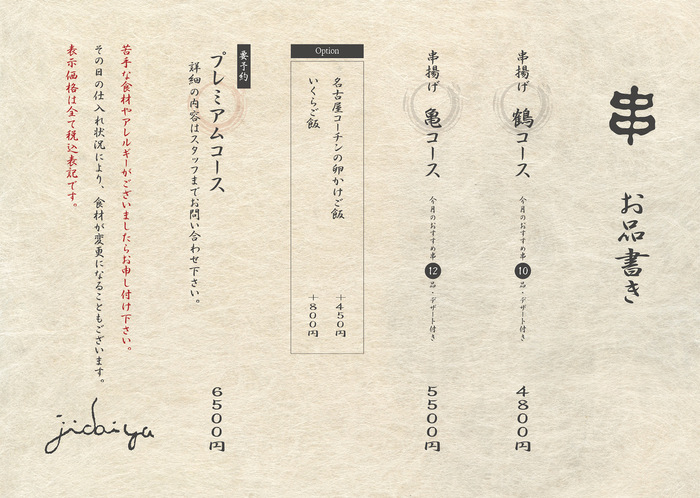 串
お品書き
串揚げ 鶴コース
今月のおすすめ串 10 品・デザート付き
4800円
串揚げ 亀コース
今月のおすすめ串 12 品・デザート付き
5500円
Option
名古屋コーチンの卵かけご飯 +450円
いくらご飯 +800円
要予約
プレミアムコース
詳細の内容はスタッフまでお問い合わせ下さい。
6500円
苦手な食材やアレルギーがございましたらお申し付け下さい。
その日の仕入れ状況により、食材が変更になることもございます。
表示価格は全て税込表記です。
jidaiya